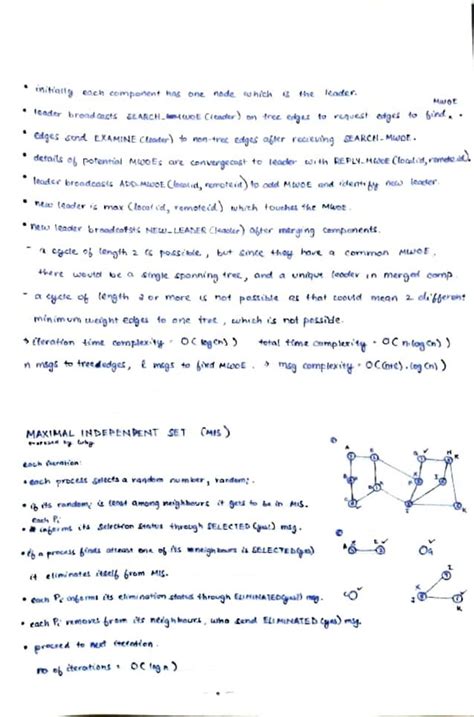 • initially each component has one node which is the leader.
MWOE
• leader broadcasts SEARCH_MWOE (leader) on tree edges to request edges to find.
• edges send EXAMINE (leader) to non-tree edges after recieving SEARCH-MWOE.
• details of potential MWOEs are convergecast to leader with REPLY-MWOE (localid, remoteid).
• leader broadcasts ADD-MWOE (localid, remoteid) to add MWOE and identify new leader.
• new leader is max (localid, remoteid) which touches the MWOE.
• new leader broadcasts NEW_LEADER (leader) after merging components.
- a cycle of length 2 is possible, but since they have a common MWOE,
there would be a single spanning tree, and a unique leader in merged comp.
- a cycle of length 3 or more is not possible as that would mean 2 different
minimum weight edges to one tree, which is not possible.
→ iteration time complexity = O(log(n)) total time complexity = O(n·log(n))
n msgs to tree edges, l msgs to find MWOE. → msg complexity = O((n+l)·log(n))
MAXIMAL INDEPENDENT SET (MIS)
proposed by Luby
each iteration:
• each process selects a random number, randomi.
• if its randomi is least among neighbours it gets to be in MIS.
each Pi
• informs its selection status through SELECTED(yes!) msg.
• if a process finds atleast one of its neighbours is SELECTED(yes)
it eliminates itself from MIS.
• each Pi informs its elimination status through ELIMINATED(yes) msg.
• each Pi removes from its neighbours, who send ELIMINATED(yes) msg.
• proceed to next iteration.
no of iterations = O(log n)